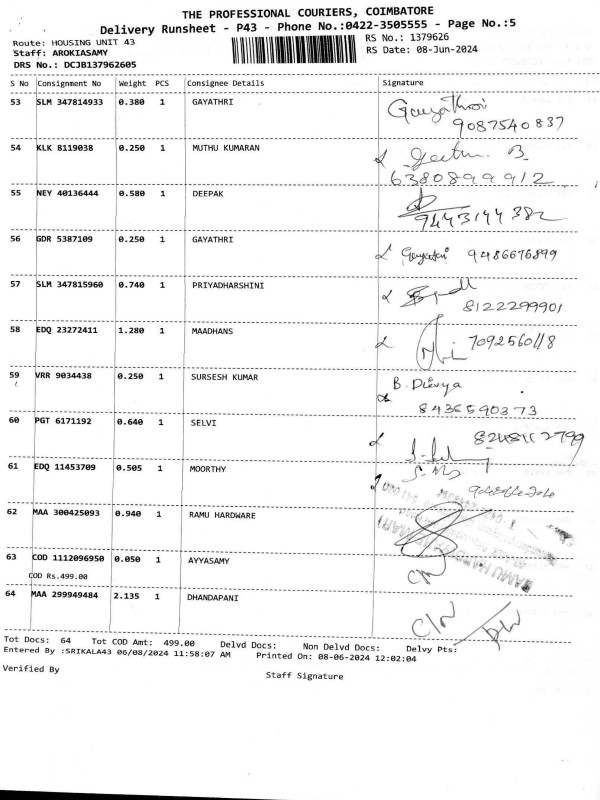 THE PROFESSIONAL COURIERS, COIMBATORE
Delivery Runsheet - P43 - Phone No.:0422-3505555 - Page No.:5
Route: HOUSING UNIT 43 RS No.: 1379626
Staff: AROKIASAMY RS Date: 08-Jun-2024
DRS No.: DCJB137962605
S No Consignment No Weight PCS Consignee Details Signature
53 SLM 347814933 0.380 1 GAYATHRI Gayathri
9087540837
54 KLK 8119038 0.250 1 MUTHU KUMARAN B
6380899912
55 NEY 40136444 0.580 1 DEEPAK
9443144382
56 GDR 5387109 0.250 1 GAYATHRI Gayatri 9486676899
57 SLM 347815960 0.740 1 PRIYADHARSHINI
8122299901
58 EDQ 23272411 1.280 1 MAADHANS 7092560118
59 VRR 9034438 0.250 1 SURSESH KUMAR B. Divya
8436590373
60 PGT 6171192 0.640 1 SELVI 8248112799
61 EDQ 11453709 0.505 1 MOORTHY
62 MAA 300425093 0.940 1 RAMU HARDWARE
63 COD 1112096950 0.050 1 AYYASAMY
COD Rs.499.00
64 MAA 299949484 2.135 1 DHANDAPANI
Tot Docs: 64 Tot COD Amt: 499.00 Delvd Docs: Non Delvd Docs: Delvy Pts:
Entered By :SRIKALA43 06/08/2024 11:58:07 AM Printed On: 08-06-2024 12:02:04
Verified By Staff Signature